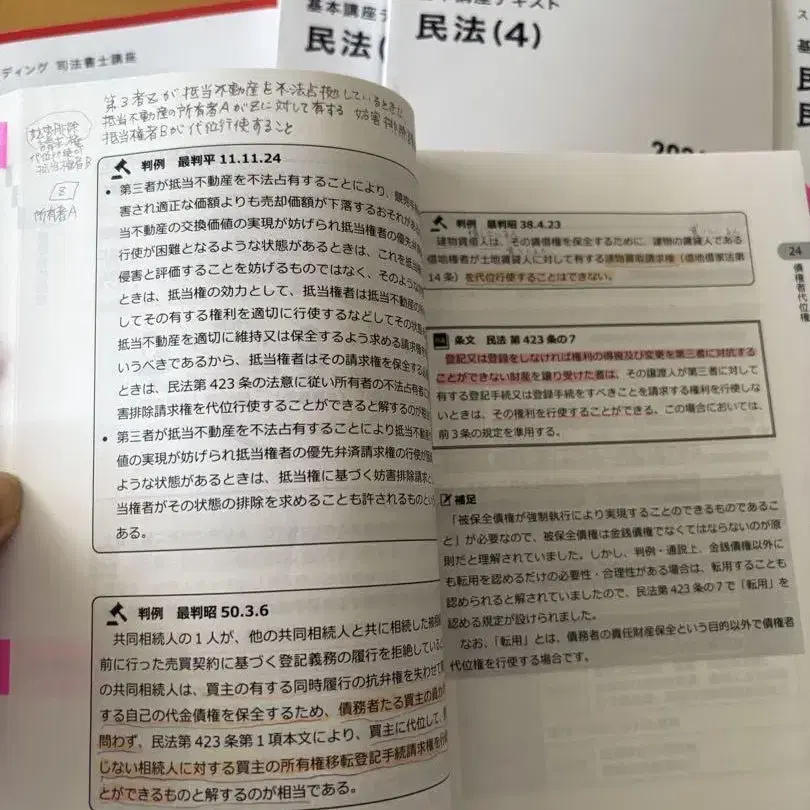 ディング 司法書士講座
基本講座テ
民法(
民法(4)
第3者Zが抵当不動産を不法占拠しているときに
抵当不動産の所有者AがZに対して有する 妨害排除
抵当権者Bが代位行使すること
妨害排除
代位行使
抵当権者B
Z
所有者A
判例 最判平 11.11.24
・第三者が抵当不動産を不法占有することにより、競売手
害され適正な価額よりも売却価額が下落するおそれがあ
当不動産の交換価値の実現が妨げられ抵当権者の優先弁
行使が困難となるような状態があるときは、これを抵当
侵害と評価することを妨げるものではなく、そのような
ときは、抵当権の効力として、抵当権者は抵当不動産の
してその有する権利を適切に行使するなどしてその状
抵当不動産を適切に維持又は保全するよう求める請求権
いうべきであるから、抵当権者はその請求権を保全する
ときは、民法第 423 条の法意に従い所有者の不法占有者
害排除請求権を代位行使することができると解するのが
・第三者が抵当不動産を不法占有することにより抵当不動
値の実現が妨げられ抵当権者の優先弁済請求権の行使が
ような状態があるときは、抵当権に基づく妨害排除請求と
当権者がその状態の排除を求めることも許されるものと
ある。
判例 最判昭 50.3.6
共同相続人の1人が、他の共同相続人と共に相続した
前に行った売買契約に基づく登記義務の履行を拒絶している
の共同相続人は、買主の有する同時履行の抗弁権を失わせて
する自己の代金債権を保全するため、債務者たる買主の資
問わず、民法第 423 条第1項本文により、買主に代位して、
じない相続人に対する買主の所有権移転登記手続請求権を行
とができるものと解するのが相当である。
判例 最判昭 38.4.23
建物賃借人は、その賃借権を保全するために、建物の賃貸人である
借地権者が土地賃貸人に対して有する建物買取請求権（借地借家法第
14 条）を代位行使することはできない。
24
債権者代位権
条文 民法 第 423 条の7
登記又は登録をしなければ権利の得喪及び変更を第三者に対抗する
ことができない財産を譲り受けた者は、その譲渡人が第三者に対して
有する登記手続又は登録手続をすべきことを請求する権利を行使しな
いときは、その権利を行使することができる。この場合においては、
前3条の規定を準用する。
補足
「被保全債権が強制執行により実現することのできるものであるこ
と」が必要なので、被保全債権は金銭債権でなくてはならないのが原
則だと理解されていました。しかし、判例・通説上、金銭債権以外に
も転用を認めるだけの必要性・合理性がある場合は、転用することも
認められると解されていましたので、民法第 423 条の7で「転用」を
認める規定が設けられました。
なお、「転用」とは、債務者の責任財産保全という目的以外で債権者
代位権を行使する場合です。